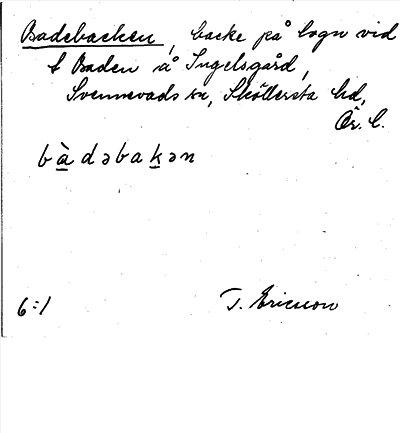 Badebacken, backe på logn vid
f Baden å Ingelsgård,
Svennevads sn, Sköllersta hd,
Ör. l.
bàdəbakən
6:1
T. Ericsson